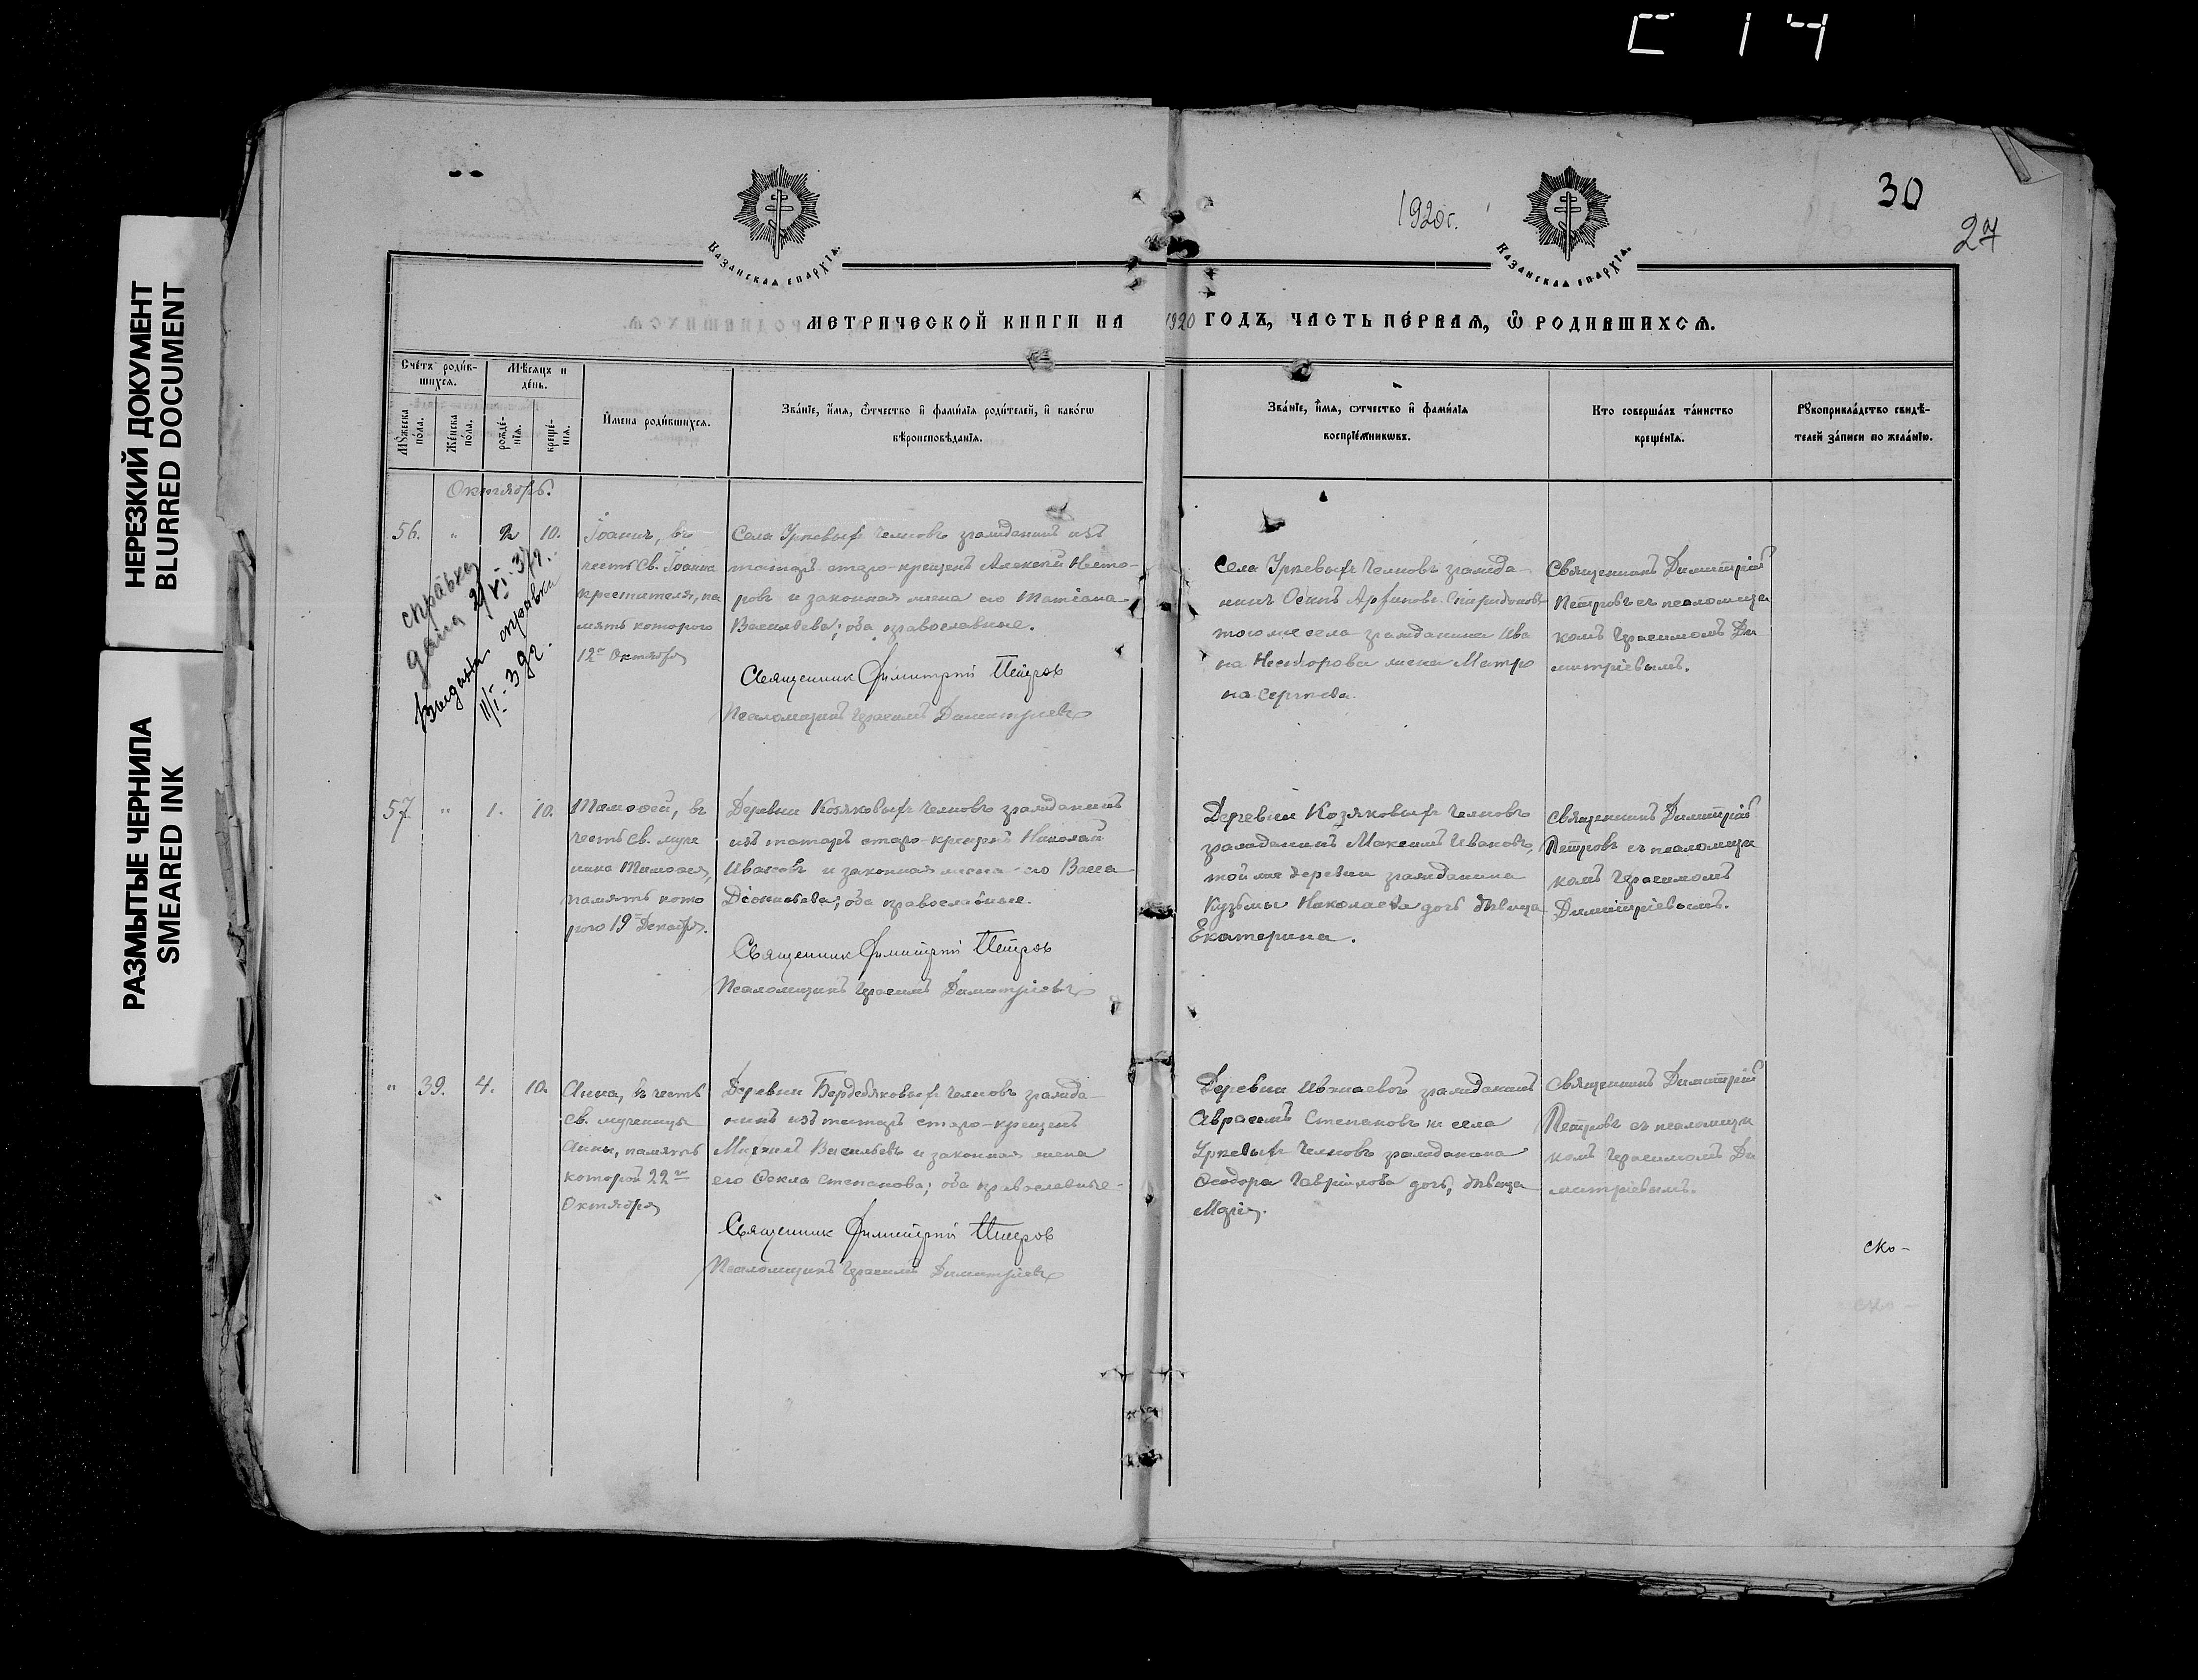 НЕРЕЗКИЙ ДОКУМЕНТ
BLURRED DOCUMENT
РАЗМЫТЫЕ ЧЕРНИЛА
SMEARED INK
30
1920 г.
27
КАЗАНСКАЯ ЕПАРХІЯ.
КАЗАНСКАЯ ЕПАРХІЯ.
МЕТРИЧЕСКОЙ КНИГИ НА 1920 ГОДЪ, ЧАСТЬ ПЕ́РВАЯ, Ѽ РОДИВШИХСѦ.
Сче́тъ роди́в-
шихся.
Мѣ́сяцъ и
де́нь.
Мꙋ́жеска
по́ла.
Же́нска
по́ла.
рожде́-
нїѧ.
креще́-
нїѧ.
И́мена роди́вшихся.
Зва́нїе, и́мя, ѻ҆́тчество и҆ фами́лїя роди́телей, и҆ како́гѡ
вѣроисповѣ́данїѧ.
Зва́нїе, и́мя, ѻтчество и҆ фами́лїѧ
воспрїе́мникѡвъ.
Кто соверша́лъ та́инство
креще́нїѧ.
Рꙋкоприкла́дство свидѣ́-
телей за́писи по жела́нїю.
Октябрь.
56. " 2 10.
Іоаннъ, въ
честь Св. Іоанна
крестителя, па
мять котораго
12го Октября
Села Уркевыхъ Челновъ гражданинъ изъ
татаръ старо-крещенъ Алексѣй Несто-
ровъ и законная жена его Татіана
Васильева; оба православные.
Священник Димитрій Петров
Псаломщикъ Герасимъ Димитріевъ
Села Уркевыхъ Челновъ гражда-
нинъ Осипъ Архиповъ Спиридоновъ
того же села гражданина Ива
на Несторова жена Матро
на Сергѣева.
Священникъ Димитрій
Петровъ съ псаломщи
комъ Герасимомъ Ди
митріевымъ.
справка
дана
Выдана справка
11/I-39г.
57. " 1. 10.
Тимоѳей, въ
честь св. муче
ника Тимоѳея,
память кото
раго 19го Декабря.
Деревни Козяковыхъ Челновъ гражданинъ
изъ татаръ старо-крещенъ Николай
Ивановъ и законная жена его Васса
Діонисьева; оба православные.
Священник Димитрій Петров
Псаломщикъ Герасимъ Димитріевъ
Деревни Козяковыхъ Челновъ
гражданинъ Максимъ Ивановъ,
той же деревни гражданина
Кузьмы Николаева дочь дѣвица
Екатерина.
Священникъ Димитрій
Петровъ съ псаломщи
комъ Герасимомъ
Димитріевымъ.
" 39. 4. 10.
Анна, въ честь
св. мученицы
Анны, память
которой 22го
Октября
Деревни Бердебяковыхъ Челновъ гражда-
нинъ изъ татаръ старо-крещенъ
Михаилъ Васильевъ и законная жена
его Ѳекла Степанова; оба православные.
Священник Димитрій Петров
Псаломщикъ Герасимъ Димитріевъ
Деревни гражданинъ
Авраамъ Степановъ и села
Уркевыхъ Челновъ гражданина
Ѳеодора Гаврилова дочь, дѣвица
Марія.
Священникъ Димитрій
Петровъ съ псаломщи
комъ Герасимомъ Ди
митріевымъ.
ско-